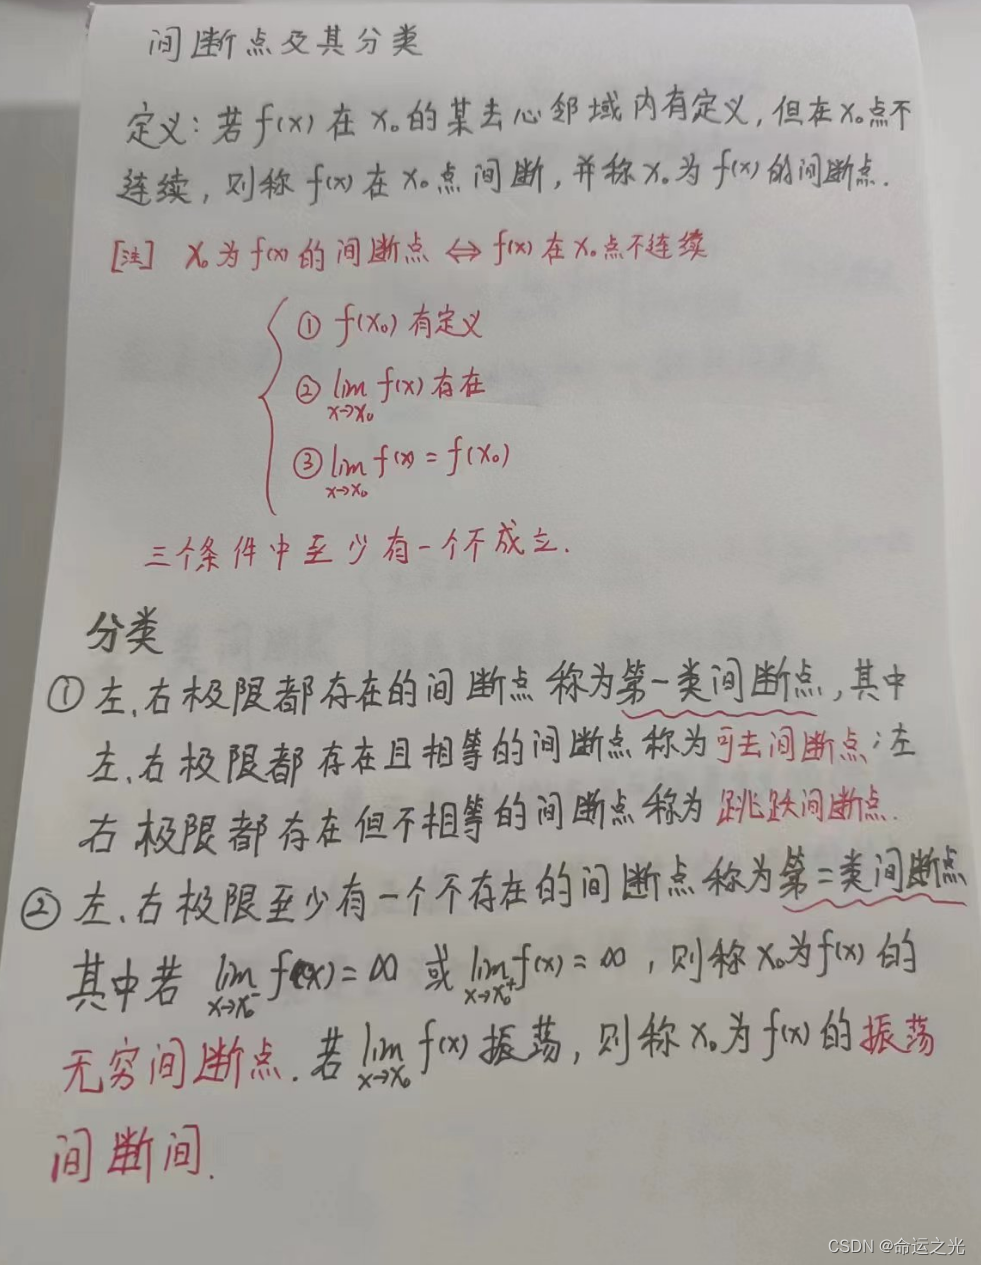 间断点及其分类
定义：若 f(x) 在 x₀ 的某去心邻域内有定义，但在 x₀ 点不
连续，则称 f(x) 在 x₀ 点间断，并称 x₀ 为 f(x) 的间断点.
[注] x₀ 为 f(x) 的间断点 ⇔ f(x) 在 x₀ 点不连续
① f(x₀) 有定义
② lim f(x) 存在
x→x₀
③ lim f(x) = f(x₀)
x→x₀
三个条件中至少有一个不成立.
分类
① 左、右极限都存在的间断点称为第一类间断点，其中
左、右极限都存在且相等的间断点称为可去间断点；左
右极限都存在但不相等的间断点称为跳跃间断点.
② 左、右极限至少有一个不存在的间断点称为第二类间断点
其中若 lim f(x) = ∞ 或 lim f(x) = ∞，则称 x₀ 为 f(x) 的
x→x₀⁻ x→x₀⁺
无穷间断点. 若 lim f(x) 振荡，则称 x₀ 为 f(x) 的振荡
x→x₀
间断间.
CSDN @命运之光